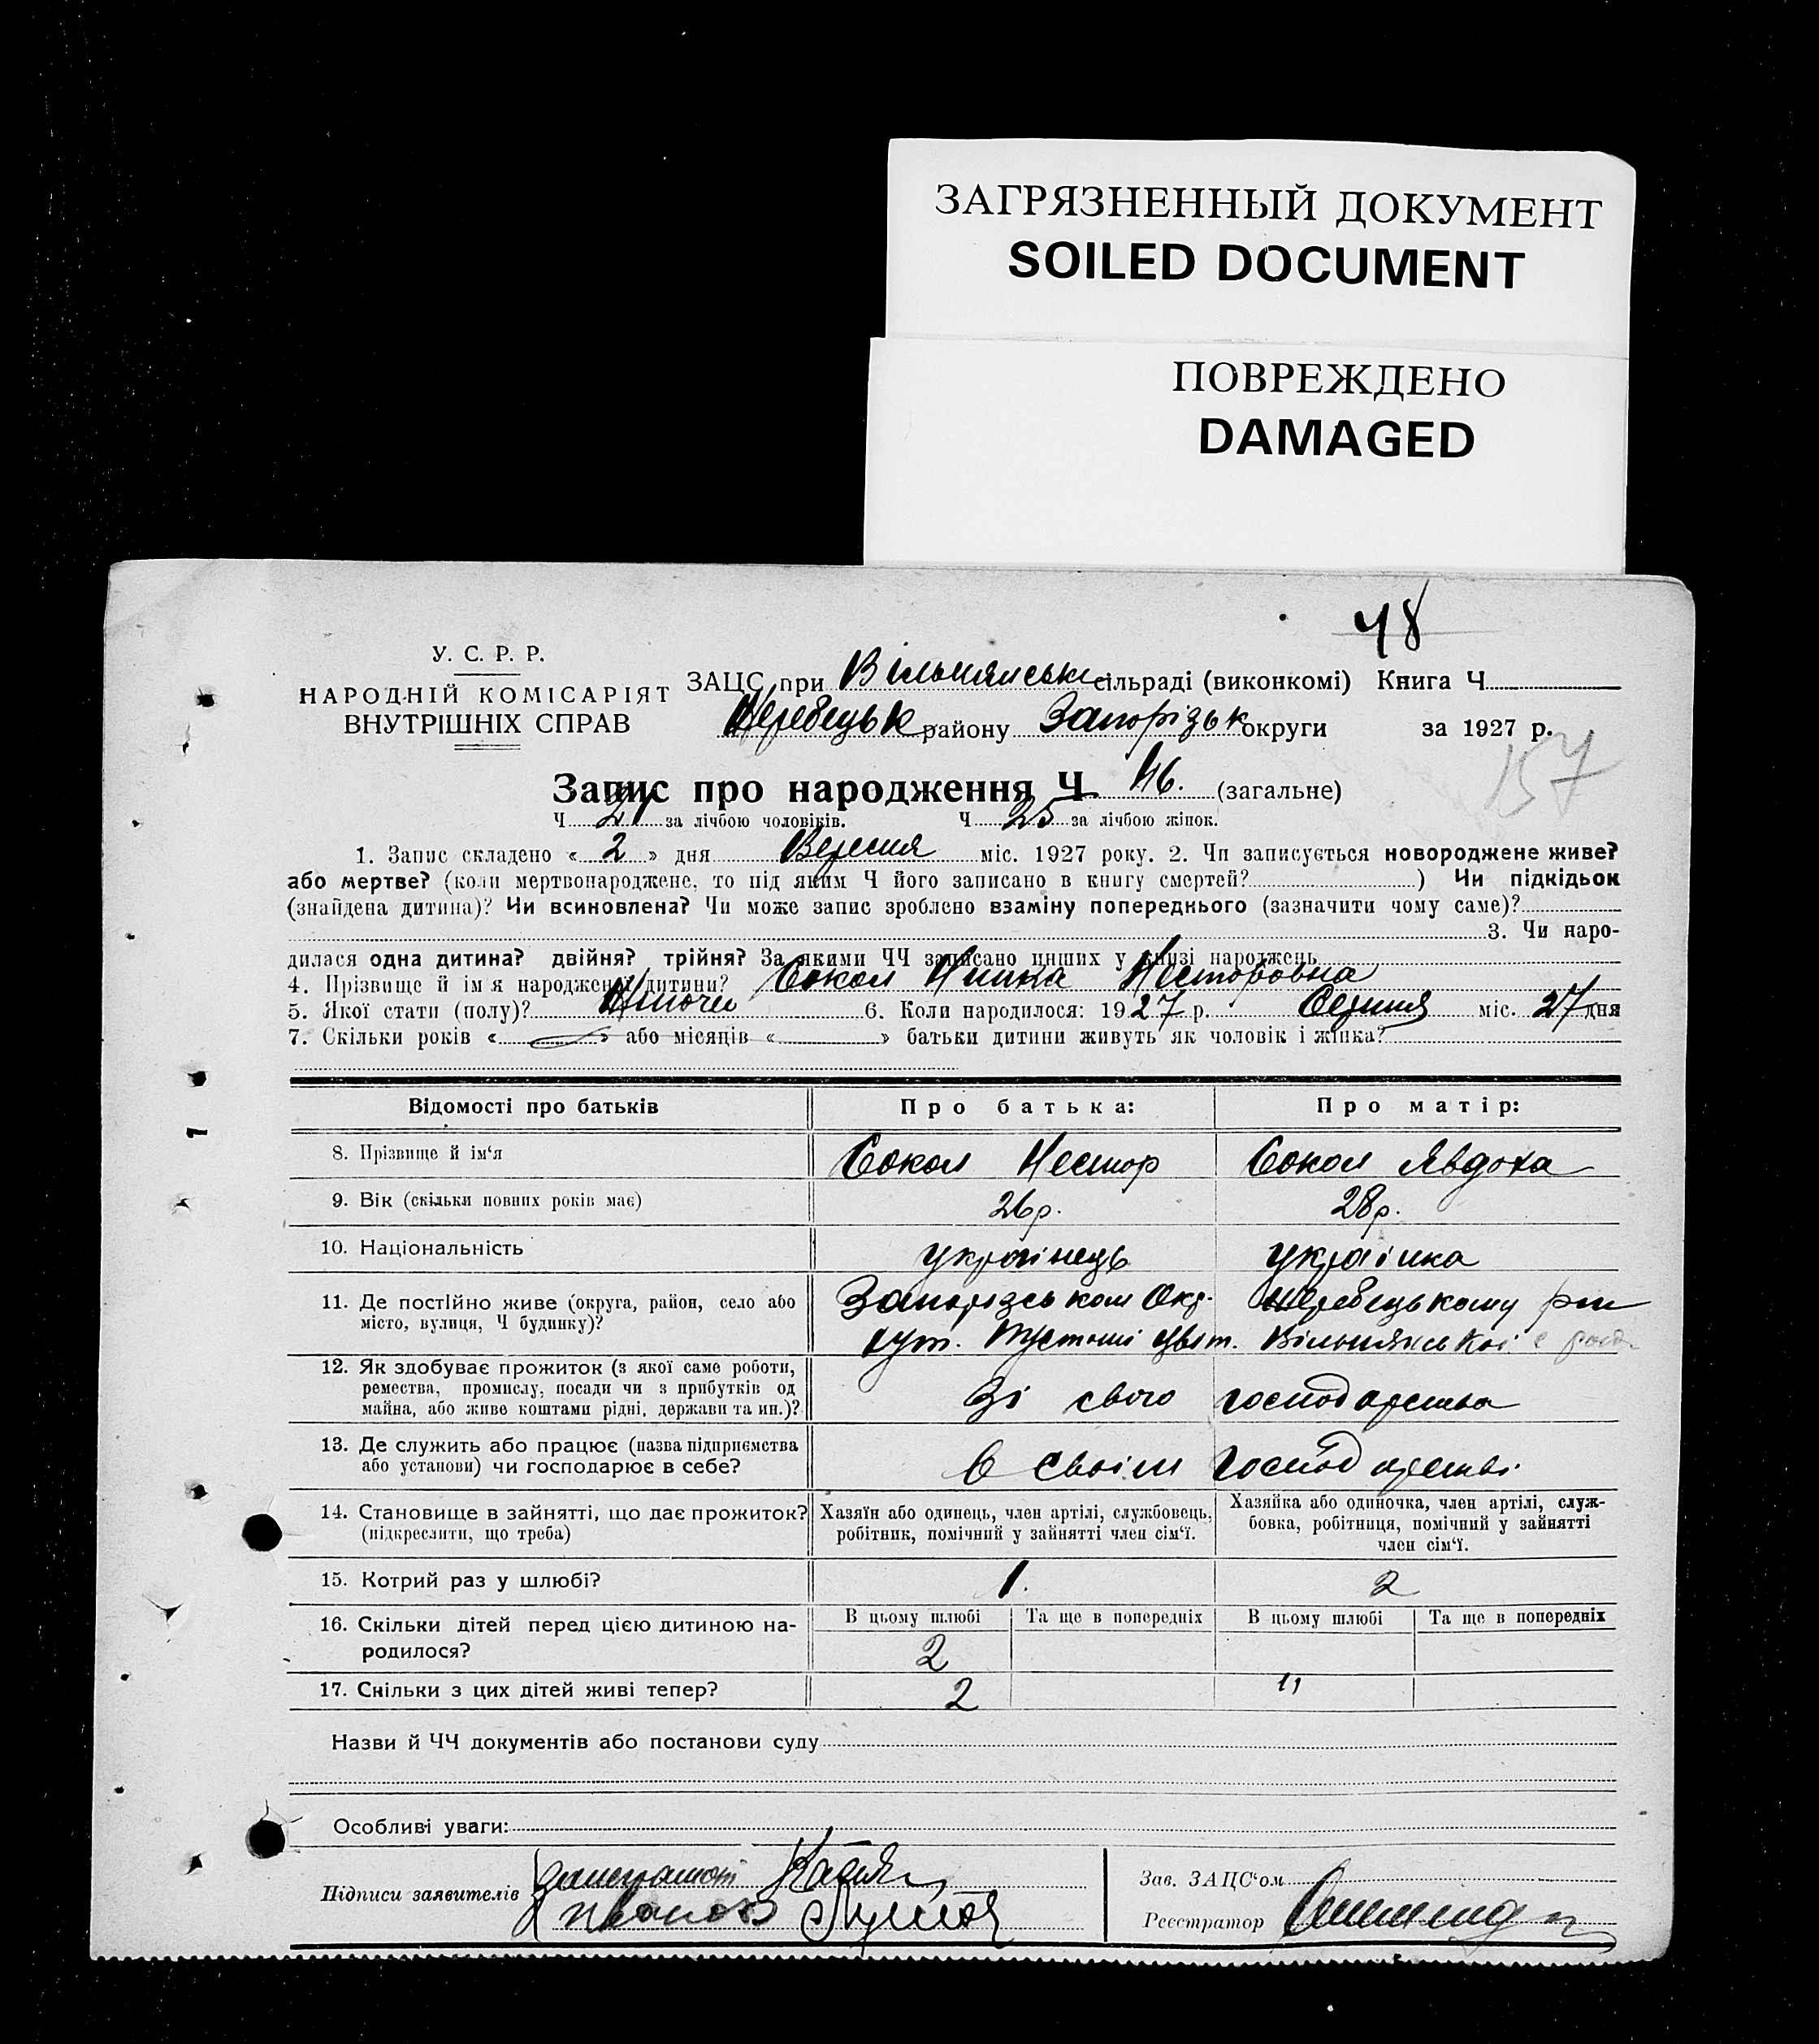 ЗАГРЯЗНЕННЫЙ ДОКУМЕНТ
SOILED DOCUMENT
ПОВРЕЖДЕНО
DAMAGED
48
У. С. Р. Р.
НАРОДНІЙ КОМІСАРІЯТ
ВНУТРІШНІХ СПРАВ
ЗАЦС при Вільнянські сільраді (виконкомі) Книга Ч
Жеребецьк району Запорізьк округи за 1927 р.
157
Запис про народження Ч 46. (загальне)
Ч 21 за лічбою чоловіків. Ч 25 за лічбою жінок.
1. Запис складено « 2 » дня Вересня міс. 1927 року. 2. Чи записується новороджене живе?
або мертве? (коли мертвонароджене, то під яким Ч його записано в книгу смертей? ) Чи підкідьок
(знайдена дитина)? Чи всиновлена? Чи може запис зроблено взаміну попереднього (зазначити чому саме)?
3. Чи наро-
дилася одна дитина? двійня? трійня? За якими ЧЧ записано инших у книзі народжень
4. Прізвище й ім'я народженої дитини? Сокол Нинка Несторовна
5. Якої стати (полу)? Жіночи 6. Коли народилося: 1927 р. Серпня міс. 27 дня
7. Скільки років « » або місяців « » батьки дитини живуть як чоловік і жінка?
Відомості про батьків
Про батька:
Про матір:
8. Прізвище й ім'я
Сокол Нестор
Сокол Явдоха
9. Вік (скільки повних років має)
26р.
28р.
10. Національність
українець
українка
11. Де постійно живе (округа, район, село або
місто, вулиця, Ч будинку)?
Запорізськом Окр. Жеребецькому рай
хут. Пустоши цвіт. Вільнянської с ради
12. Як здобуває прожиток (з якої саме роботи,
ремества, промислу, посади чи з прибутків од
майна, або живе коштами рідні, держави та ин.)?
Зі свого господарства
13. Де служить або працює (назва підприємства
або установи) чи господарює в себе?
в своїм господарстві
14. Становище в зайнятті, що дає прожиток?
(підкреслити, що треба)
Хазяїн або одинець, член артілі, службовець,
робітник, помічний у зайнятті член сім'ї.
Хазяйка або одиночка, член артілі, служ-
бовка, робітниця, помічний у зайнятті
член сім'ї.
15. Котрий раз у шлюбі?
1.
2
16. Скільки дітей перед цією дитиною на-
родилося?
В цьому шлюбі
Та ще в попередніх
В цьому шлюбі
Та ще в попередніх
2
17. Скільки з цих дітей живі тепер?
2
"
Назви й ЧЧ документів або постанови суду
Особливі уваги:
Підписи заявителів
Зав. ЗАЦС'ом
Реєстратор